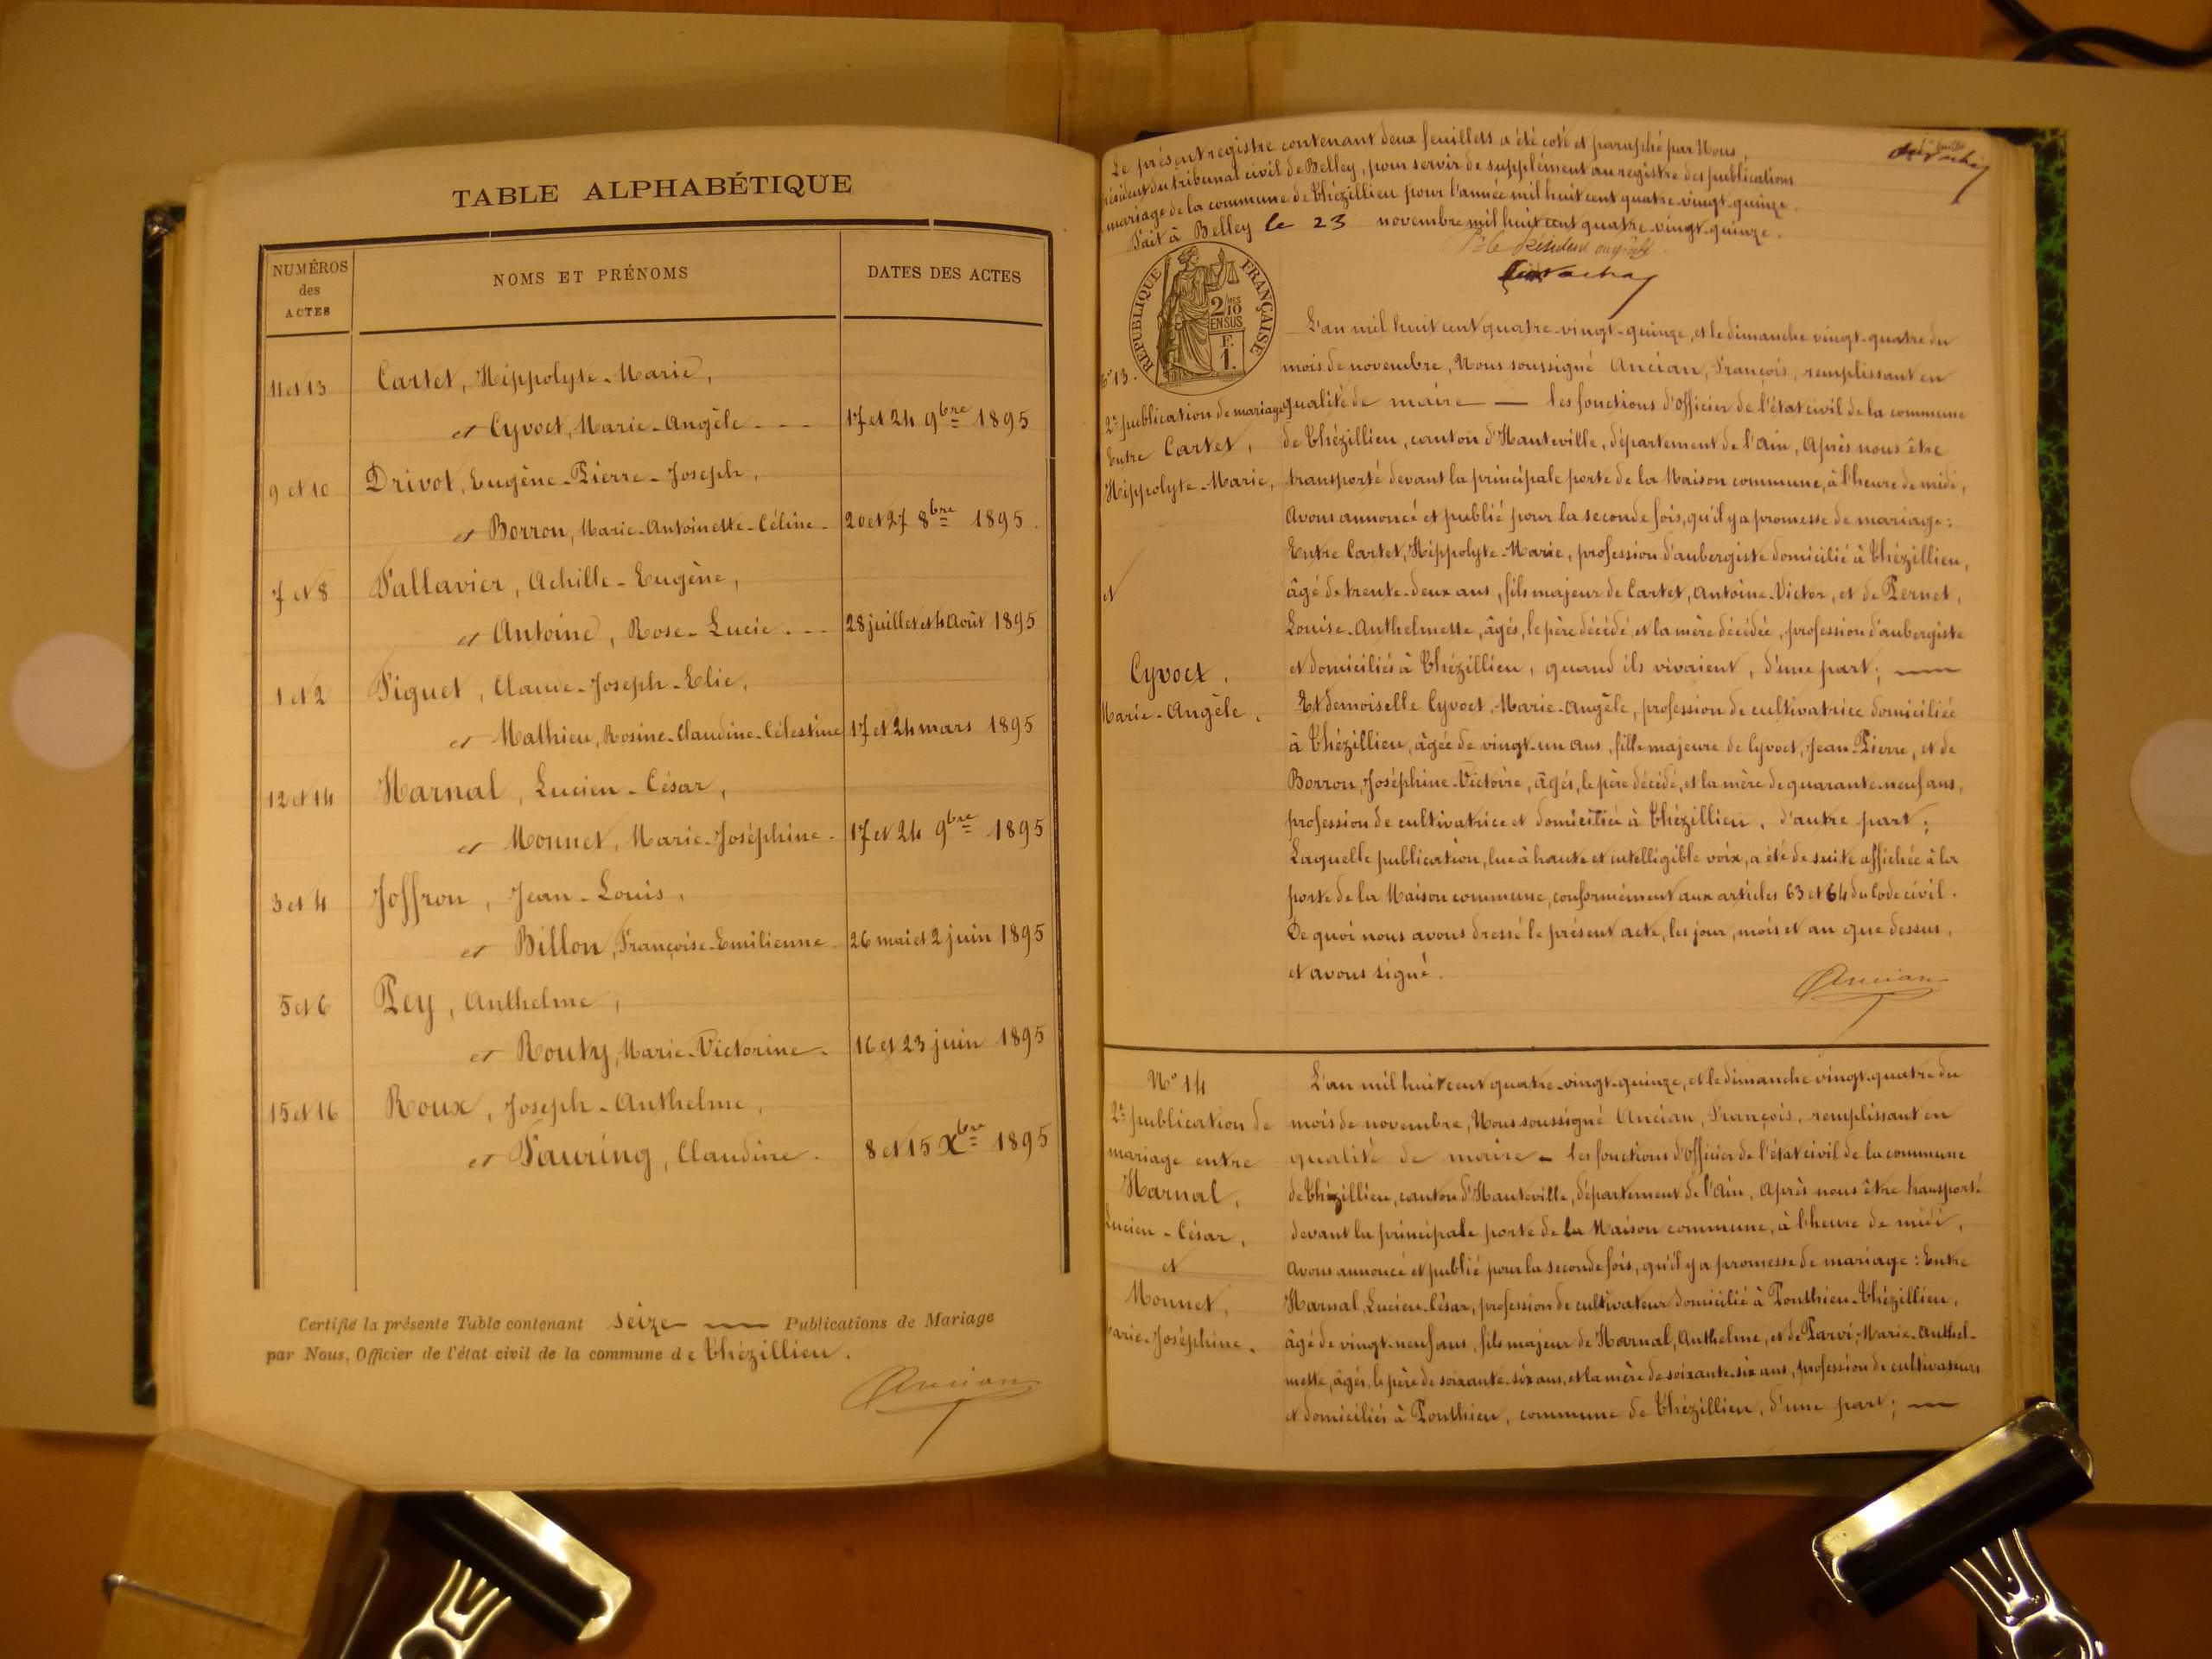 TABLE ALPHABÉTIQUE
NUMÉROS
des
ACTES
NOMS ET PRÉNOMS
DATES DES ACTES
11 et 13
Cartet, Hippolyte-Marie,
et Cyvoct, Marie-Angèle
17 et 24 9bre 1895
9 et 10
Drivot, Eugène-Pierre-Joseph,
et Borron, Marie-Antoinette-Céline
20 et 27 8bre 1895.
7 et 8
Fallavier, Achille-Eugène,
et Antoine, Rose-Lucie
28 juillet et 4 Août 1895
1 et 2
Figuet, Claude-Joseph-Elie,
et Mathieu, Rosine-Claudine-Célestine
17 et 24 mars 1895
12 et 14
Harnal, Lucien-César,
et Monnet, Marie-Joséphine
17 et 24 9bre 1895
3 et 4
Joffron, Jean-Louis,
et Billon, Françoise-Emilienne
26 mai et 2 juin 1895
5 et 6
Pey, Anthelme,
et Routy, Marie-Victorine
16 et 23 juin 1895
15 et 16
Roux, Joseph-Anthelme,
et Tauring, Claudine
8 et 15 Xbre 1895
Certifié la présente Table contenant seize Publications de Mariage
par Nous, Officier de l'état civil de la commune de Thézillieu.
Ancian
Le présent registre contenant deux feuillets a été coté et paraphé par Nous,
Président du tribunal civil de Belley, pour servir de supplément au registre des publications
mariage de la commune de Thézillieu pour l'année mil huit cent quatre-vingt-quinze.
Fait à Belley le 23 novembre mil huit cent quatre-vingt-quinze.
Pr le Président empêché
RÉPUBLIQUE FRANÇAISE
2/10 MES
EN SUS
F.
1.
No 13.
2e publication de mariage
Entre Cartet,
Hippolyte-Marie,
et
Cyvoct,
Marie-Angèle.
L'an mil huit cent quatre-vingt-quinze, et le dimanche vingt-quatre du
mois de novembre, Nous soussigné Ancian, François, remplissant en
qualité de maire — les fonctions d'Officier de l'état civil de la commune
de Thézillieu, canton d'Hauteville, département de l'Ain, Après nous être
transporté devant la principale porte de la Maison commune, à l'heure de midi,
Avons annoncé et publié pour la seconde fois, qu'il y a promesse de mariage:
Entre Cartet, Hippolyte-Marie, profession d'aubergiste domicilié à Thézillieu,
âgé de trente-deux ans, fils majeur de Cartet, Antoine-Victor, et de Pernet,
Louise-Anthelmette, âgés, le père décédé, et la mère décédée, profession d'aubergiste
et domiciliés à Thézillieu, quand ils vivaient, d'une part; —
Et demoiselle Cyvoct, Marie-Angèle, profession de cultivatrice domiciliée
à Thézillieu, âgée de vingt-un ans, fille majeure de Cyvoct, Jean-Pierre, et de
Borron, Joséphine-Victoire, âgés, le père décédé, et la mère de quarante-neuf ans,
profession de cultivatrice et domiciliée à Thézillieu, d'autre part;
Laquelle publication, lue à haute et intelligible voix, a été de suite affichée à la
porte de la Maison commune, conformément aux articles 63 et 64 du Code civil.
De quoi nous avons dressé le présent acte, les jour, mois et an que dessus,
et avons signé.
Ancian
No 14
2e publication de
mariage entre
Harnal,
Lucien-César,
et
Monnet,
Marie-Joséphine.
L'an mil huit cent quatre-vingt-quinze, et le dimanche vingt-quatre du
mois de novembre, Nous soussigné Ancian, François, remplissant en
qualité de maire — les fonctions d'Officier de l'état civil de la commune
de Thézillieu, canton d'Hauteville, département de l'Ain, Après nous être transporté
devant la principale porte de la Maison commune, à l'heure de midi,
Avons annoncé et publié pour la seconde fois, qu'il y a promesse de mariage: Entre
Harnal, Lucien-César, profession de cultivateur domicilié à Ponthieu-Thézillieu,
âgé de vingt-neuf ans, fils majeur de Harnal, Anthelme, et de Parvi, Marie-Anthel-
mette, âgés, le père de soixante-six ans, et la mère de soixante-six ans, profession de cultivateurs
et domiciliés à Ponthieu, commune de Thézillieu, d'une part; —